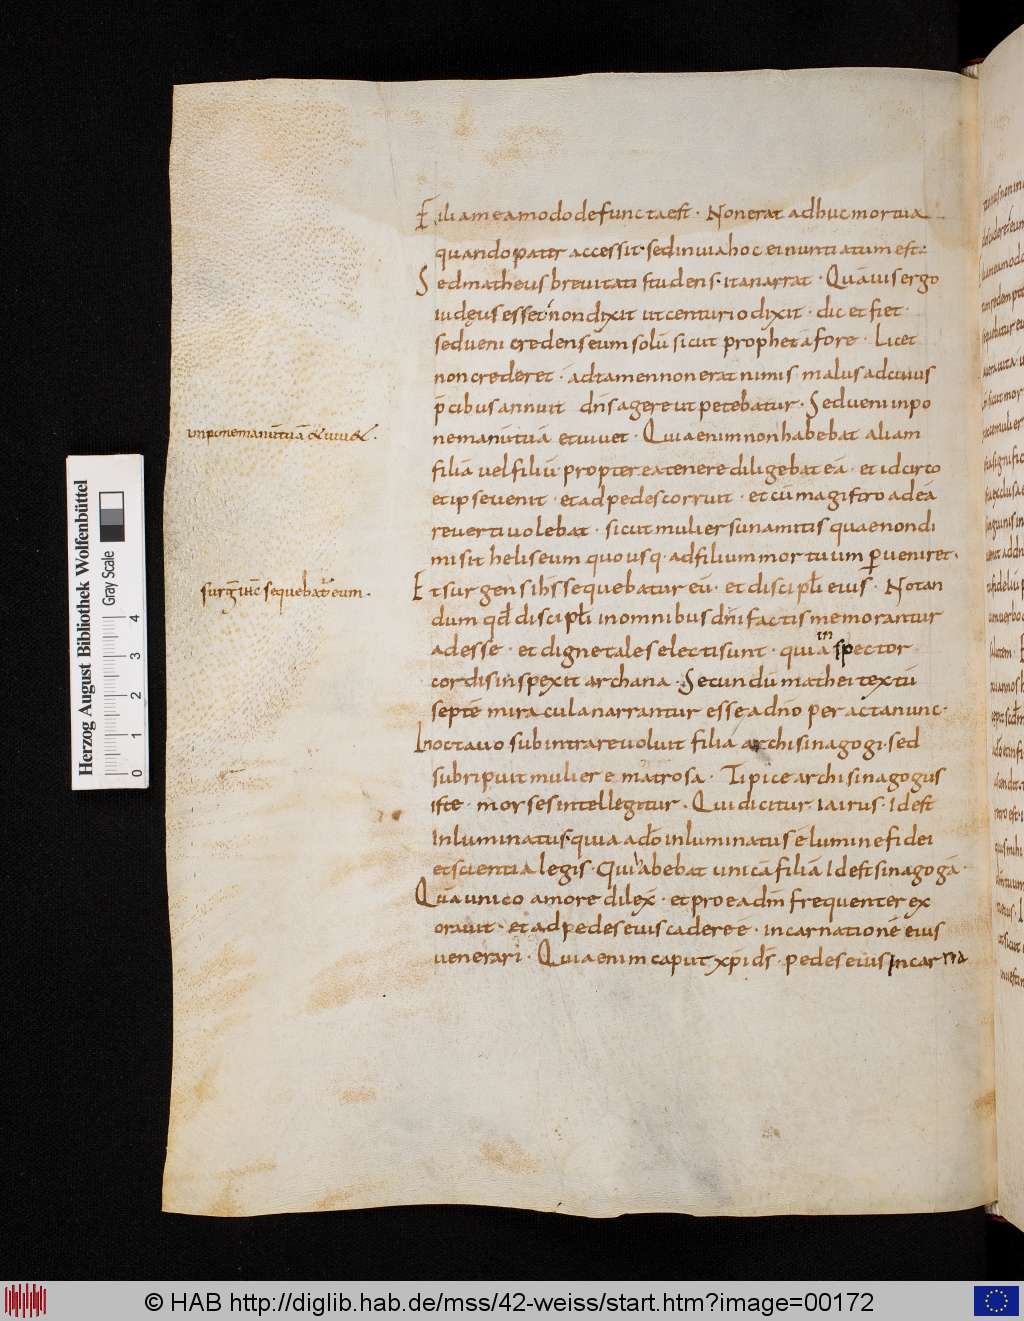 Filia mea modo defuncta est · Non erat adhuc mortua
quando pater accessit · sed in uia hoc ei nuntiatum est ·
Sed matheus breuitati studens · ita narrat · Quāuis ergo
iudęus esset · non dixit ut centurio dixit · dic et fiet ·
sed ueni credens eum solū sicut prophetā fore · Licet
non crederet · adtamen non erat nimis malus ad cuius
p̄cibus annuit dn̄s agere ut petebatur · Sed ueni inpo
inpone manū tuā & uiu& ·
ne manū tuā et uiuet · Quia enim non habebat aliam
filiā uel filiū propterea tenere diligebat eā · et idcirco
et ipse uenit · et ad pedes corruit · et cū magistro ad eā
reuerti uolebat · sicut mulier sunamitis quae non di
misit heliseum quo usq · ad filium mortuum ꝑueniret ·
surg̅ ihc̄ sequebat̄ eum ·
Et surgens ihs̄ sequebatur eū · et discipl̄i eius · Notan
dum qđ discipl̄i in omnibus dn̄i factis memorantur
adesse · et digne tales electi sunt · quia in spector
cordis inspexit archana · Secundū mathei textū
septē miracula narrantur esse a dn̄o peracta nunc ·
In octauo subintrare uoluit filia archisinagogi · sed
subripuit mulier ematrosa · Tipice archisinagogus
iste · morses intellegitur · Qui dicitur iairus · Idest
inluminatus · quia a dō inluminatus ē lumine fidei
et scientia legis · Qui habebat unicā filiā Idest sinagogā ·
Quā unico amore dilex̄ · et pro ea dm̄ frequenter ex
orauit · et ad pedes eius cadere ē · incarnationē eius
uenerari · Quia enim caput xp̄i ds̄ · pedes eius incarna
Herzog August Bibliothek Wolfenbüttel
Gray Scale
0 1 2 3 4
© HAB http://diglib.hab.de/mss/42-weiss/start.htm?image=00172